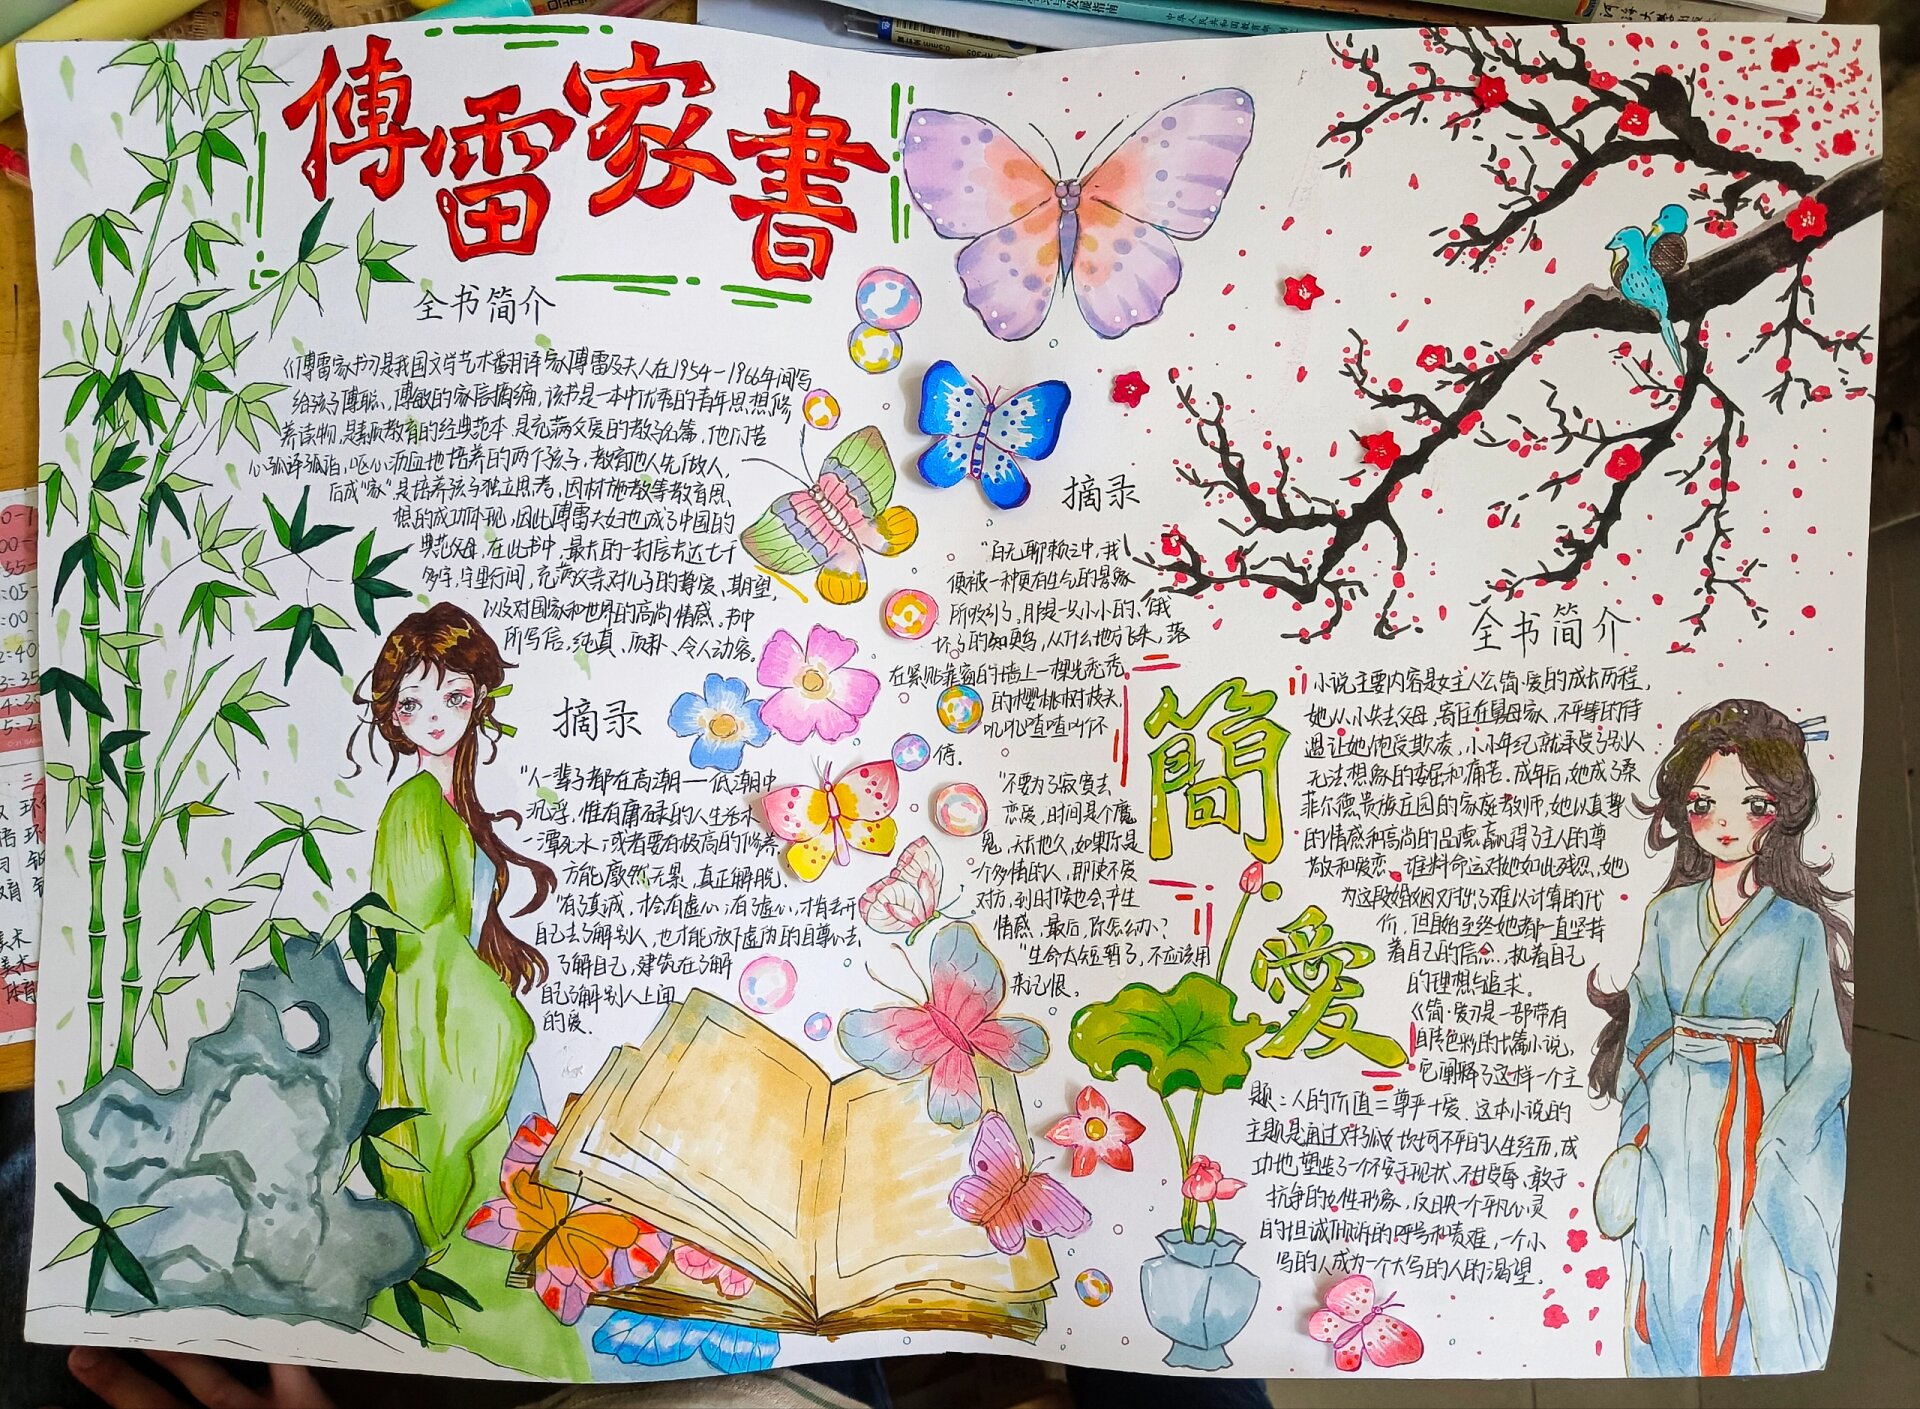 傅雷家書
全书简介
《傅雷家书》是我国文学艺术翻译家傅雷及夫人在1954-1966年间写
给孩子傅聪、傅敏的家信摘编,该书是一本优秀的青年思想修
养读物,是素质教育的经典范本,是充满父爱的教子名篇,他们苦
心孤诣,呕心沥血地培养的两个孩子,教育他人先做人,
后成"家"是培养孩子独立思考,因材施教等教育思
想的成功体现,因此傅雷夫妇也成了中国的
典范父母,在此书中,最长的一封信长达七千
多字,字里行间,充满父亲对儿子的尊爱、期望,
以及对国家和世界的高尚情感。书中
所写信,纯真、质朴、令人动容。
摘录
"人一辈子都在高潮——低潮中
沉浮,惟有庸碌的人生活才
一潭死水;或者要有极高的修养,
方能廓然无累,真正解脱.
"有了真诚,才会有虚心;有了虚心,才肯丢开
自己去了解别人,也才能放下虚伪的自尊心去
了解自己,建筑在了解
自己了解别人上面
的爱.
摘录
"百无聊赖之中,我
便被一种更有生气的景象
所吸引了,那是一只小小的、饿
坏了的知更鸟,从什么地方飞来,落
在紧贴靠窗的墙上一棵光秃秃
的樱桃树枝头,
叽叽喳喳叫个不
停.
"不要为了寂寞去
恋爱,时间是个魔
鬼,天长地久,如果你是
个多情的人,即使不爱
对方,到时候也会产生
情感,最后,你怎么办?
"生命太短暂了,不应该用
来记恨。
簡愛
全书简介
小说主要内容是女主人公简·爱的成长历程,
她从小失去父母,寄住在舅母家,不平等的待
遇让她饱受欺凌,小小年纪就承受了别人
无法想象的委屈和痛苦.成年后,她成了桑
菲尔德贵族庄园的家庭教师,她以真挚
的情感和高尚的品德赢得了主人的尊
敬和爱恋.谁料命运对她如此残忍,她
为这段婚姻又付出了难以计算的代
价,但自始至终她都一直坚持
着自己的信念,执着自己
的理想与追求。
《简·爱》是一部带有
自传色彩的长篇小说,
它阐释了这样一个主
题:人的价值=尊严+爱.这本小说的
主题是通过对孤女坎坷不平的人生经历,成
功地塑造了一个不安于现状、不甘受辱、敢于
抗争的女性形象,反映一个平凡心灵
的坦诚倾诉的呼号和责难,一个小
写的人成为一个大写的人的渴望。